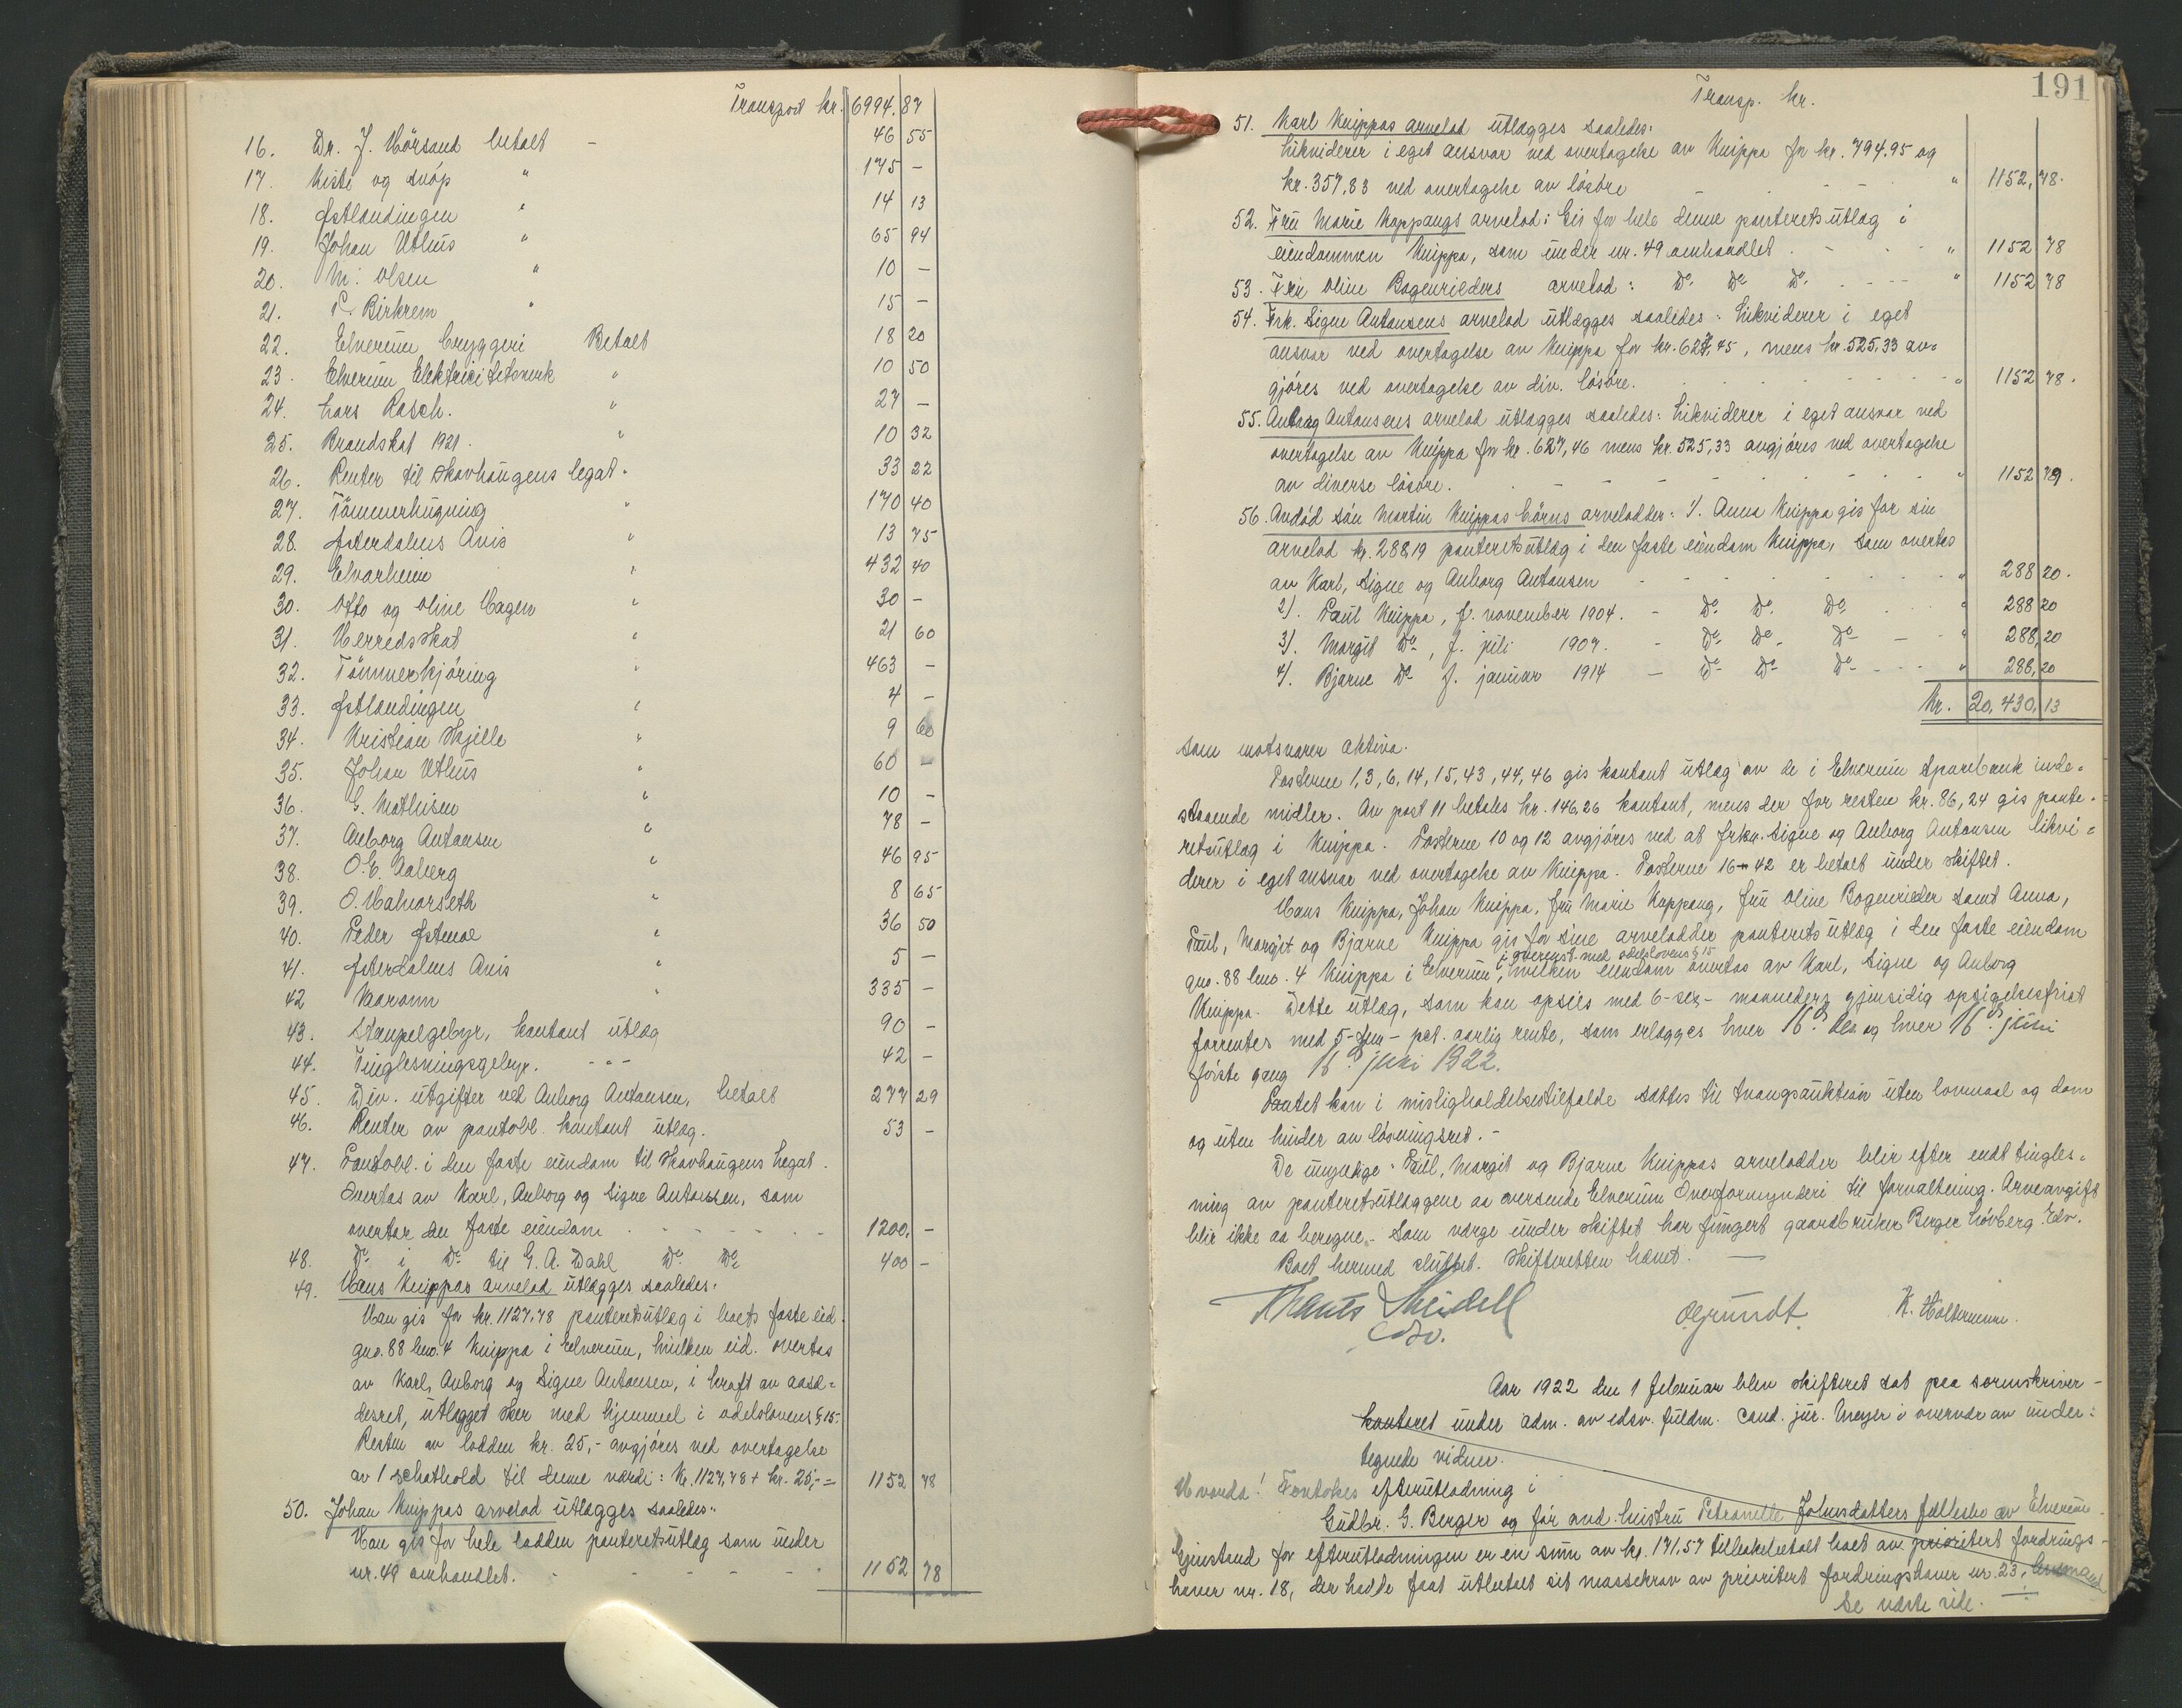 Transport kr. 6994.87
16. Dr. J. Hörsand betalt - 46 55
17. Kiste og svöp " 175 -
18. Østlendingen " 14 13
19. Johan Uthus " 65 94
20. M. Olsen " 10 -
21. P. Birkrem " 15 -
22. Elverum bryggeri Betalt 18 20
23. Elverum Elektricitetsverk " 10 50
24. Lars Rasch. " 27 -
25. Brandskat 1921. " 10 32
26. Renter til Skavhaugens legat. 33 22
27. Tömmerhugning " 170 40
28. Østerdalens Avis " 13 75
29. Elvarheim " 432 40
30. Otto og Oline Hagen " 30 -
31. Herredsskat " 21 60
32. Tömmerkjöring " 463 -
33. Østlendingen " 4 -
34. Kristian Skjille " 9 60
35. Johan Uthus " 60 -
36. G. Mathisen " 10 -
37. Anborg Antonsen " 78 -
38. O. E. Aaberg " 46 95
39. O. Halvorseth " 8 65
40. Peder Østmoe " 36 50
41. Østerdalens Avis " 5 -
42 Vaaronn " 335 -
43. Stempelgebyr, kontant utlæg 90 -
44. Tinglesningsgebyr. - - - 42 -
45. Div. utgifter ved Anborg Antonsen, betalt 277 29
46. Renter av pantobl. kontant utlæg. 53 -
47. Pantobl. i den faste eiendom til Skavhaugens Legat.
Overtas av Karl, Anborg og Signe Antonsen, som
overtar den faste eiendom 1200, -
48. Do i Do til G. A. Dahl Do Do 400 -
49. Hans Knippas arvelod utlægges saaledes:
Han gis for kr. 1127.78 panteretsutlæg i boets faste eid.
gno. 88 bno. 4 Knippa i Elverum, hvilken eid. overtas
av Karl, Anborg og Signe Antonsen, i kraft av aasæ=
desret, utlægget sker med hjemmel i odelslovens § 15.
Resten av lodden kr. 25,- avgjøres ved overtagelse
av 1 schathold til denne værdi: Kr. 1127,78 + kr. 25,- = 1152 78
50. Johan Knippas arvelod utlægges saaledes:
Han gis for hele lodden panteretsutlæg som under
nr. 49 omhandlet. 1152 78
191
Transp. kr.
51. Karl Knippas arvelod utlægges saaledes:
Likviderer i eget ansvar ved overtagelse av Knippa for kr. 794.95 og
kr. 357,83 ved overtagelse av lösöre " 1152, 78.
52. Fru Marie Koppangs arvelod: Gis for hele denne panteretsutlæg i
eiendommen Knippa, som under nr. 49 omhandlet. " 1152 78
53. Fru Oline Bogenrieders arvelod: Do Do Do. " 1152 78
54. Frk. Signe Antonsens arvelod utlægges saaledes: Likviderer i eget
ansvar ved overtagelse av Knippa for kr. 627,45, mens kr. 525,33 av=
gjöres ved overtagelse av div. lösöre. " 1152 78.
55. Anborg Antonsens arvelod utlægges saaledes: Likviderer i eget ansvar ved
overtagelse av Knippa for kr. 627,46 mens kr. 525,33 avgjöres ved overtagelse
av diverse lösöre. " 1152 79.
56. Avdöd sön Martin Knippas börns arvelodder: 1/. Anna Knippa gis for sin
arvelod kr. 288,19 panteretsutlæg i den faste eiendom Knippa, som overtas
av Karl, Signe og Anborg Antonsen " 288 20.
2/. Paul Knippa, f. november 1904. - Do Do. Do " 288 20
3/. Margit Do, f. juli 1907. - Do Do. Do - " 288, 20
4/. Bjarne Do f. januar 1914 - Do Do Do - " 288, 20
Kr. 20,430, 13
som motsvarer aktiva.
Posterne 1, 3, 6, 14, 15, 43, 44, 46 gis kontant utlæg av de i Elverum Sparebank inde=
staaende midler. Av post 11 betales kr. 146,26 kontant, mens der for resten kr. 86,24 gis pante=
retsutlæg i Knippa. Posterne 10 og 12 avgjöres ved at frkn. Signe og Anborg Antonsen likvi=
derer i eget ansvar ved overtagelse av Knippa. Posterne 16-42 er betalt under skiftet.
Hans Knippa, Johan Knippa, fru Marie Koppang, fru Oline Bogenrieder samt Anna,
Paul, Margit og Bjarne Knippa gis for sine arvelodder panteretsutlæg i den faste eiendom
i overenst. med odelslovens § 15
gno. 88 bno. 4 Knippa i Elverum, hvilken eiendom overtas av Karl, Signe og Anborg
Knippa. Dette utlæg, som kan opsies med 6-sex- maaneders gjensidig opsigelsesfrist
forrentes med 5-fem- pct. aarlig rente, som erlægges hver 16. des og hver 16. juni
förste gang 16. juni 1922.
Pantet kan i misligholdelsestilfælde sættes til tvangsauktion uten lovmaal og dom
og uten hinder av lösningsret. -
De umyndige: Paul, Margit og Bjarne Knippas arvelodder blir efter endt tingles=
ning av panteretsutlæggene at oversende Elverum Overformynderi til forvaltning. Arveavgift
blir ikke at beregne. - Som værge under skiftet har fungert gaardbruker Berger Lövberg Edv.
Boet hermed sluttet. Skifteretten hævet.
Meidell
Edsv.
O Grundt.
Aar 1922 den 1 februar blev skifteret sat paa sorenskriver-
kontoret under adm. av edsv. fuldm. cand. jur. Meyer i overvær av under=
tegnede vidner.
Hvorda! Foretokes efterutlodning i
Gudbr. G. Berger ogför avd. hustru Petronelle Johnsdatters fællesbo av Elverum.
Gjenstand for efterutlodningen er en sum av kr. 171.57 tilbakebetalt boet av prioritert fordrings-
haver nr. 18, der hadde faat utbetalt sit massekrav av prioritert fordringshaver nr. 23,
Se næste side.